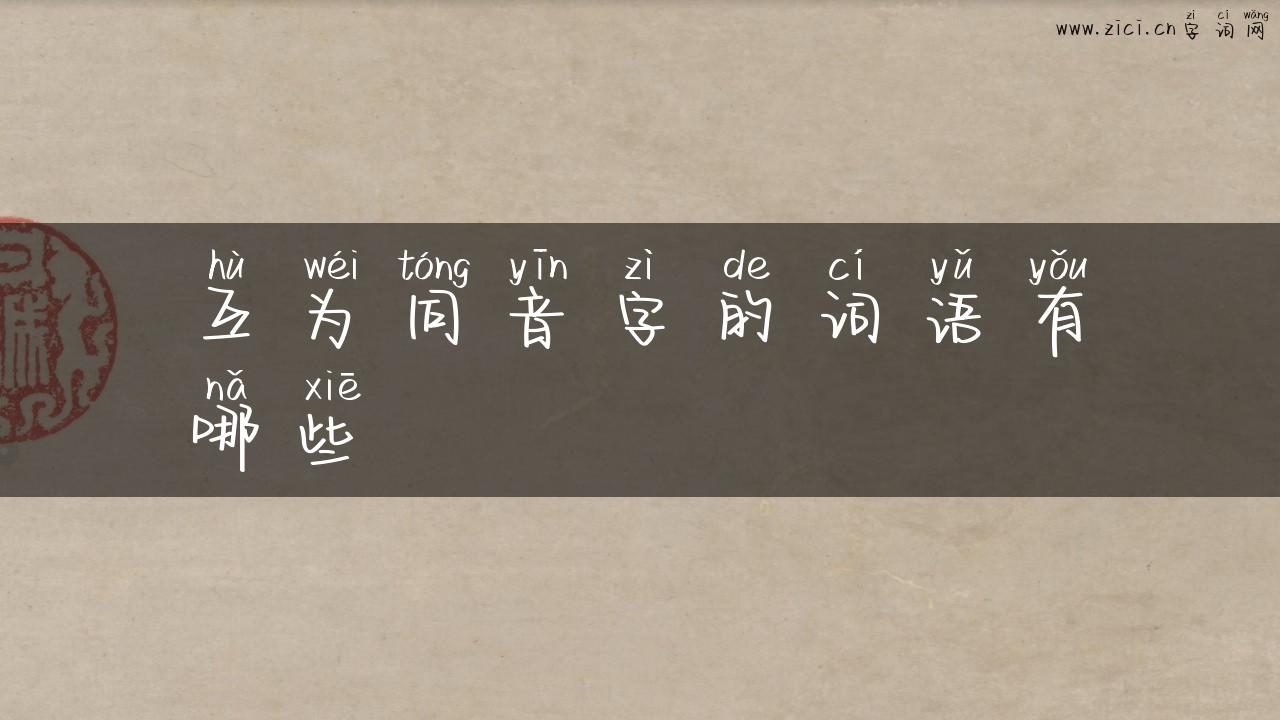 zì cí wǎng
www.zici.cn 字 词 网
hù wéi tóng yīn zì de cí yǔ yǒu
互 为 同 音 字 的 词 语 有
nǎ xiē
哪 些